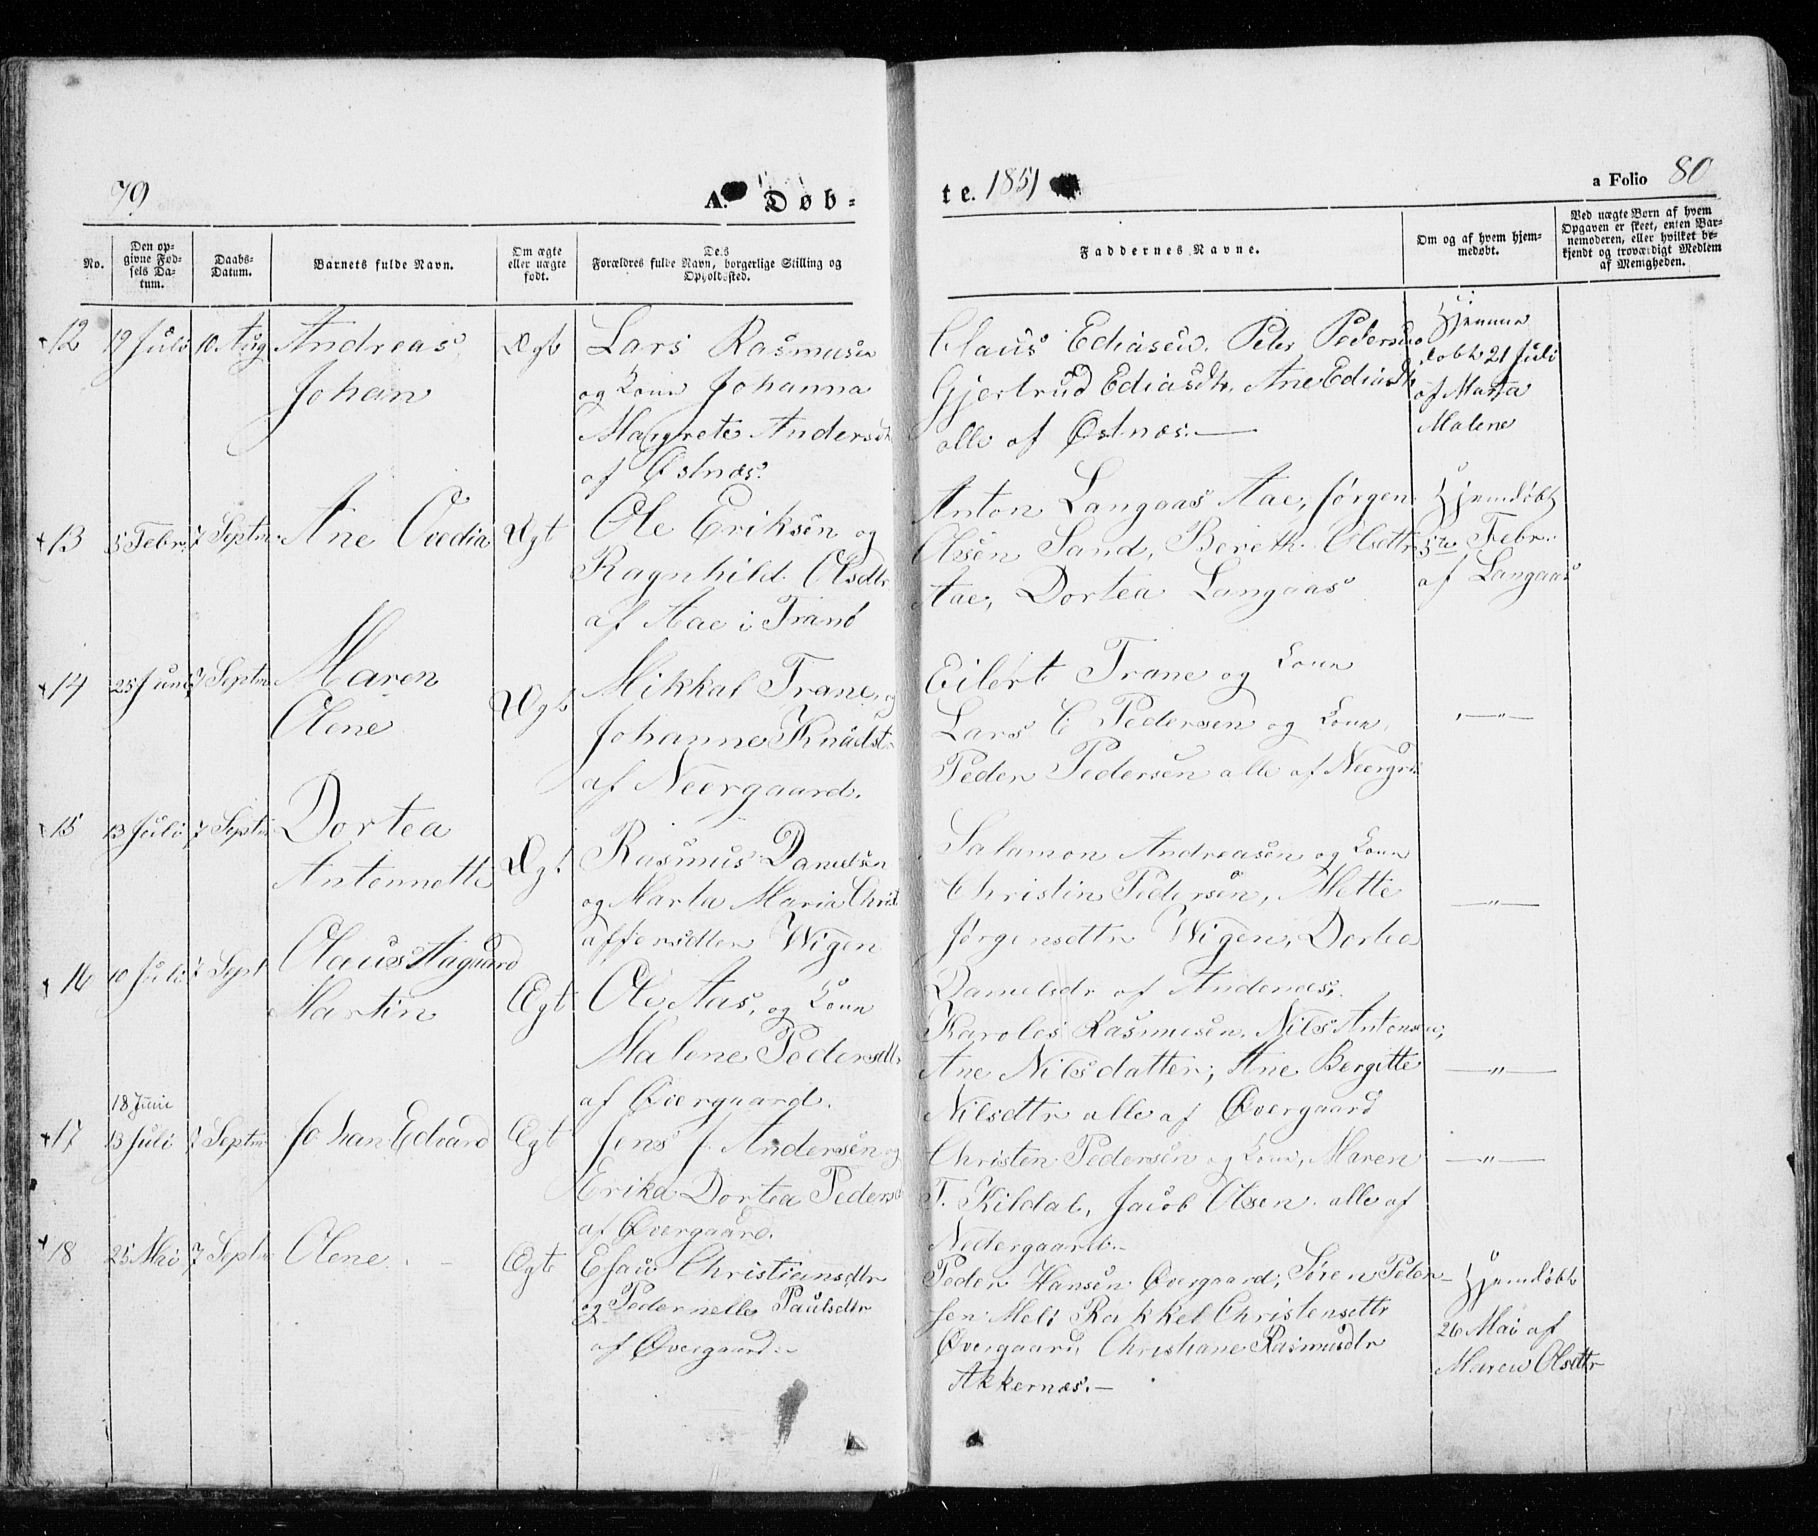 79
A. Døb-
te. 1851
a Folio 80
No.
Den op-
givne Fød-
sels Da-
tum.
Daabs-
Datum.
Barnets fulde Navn.
Om ægte
eller uægte
født.
Forældres fulde Navn, borgerlige Stilling og
Opholdssted.
Faddernes Navne.
Om og af hvem hjem-
medøbt.
Ved uægte Born af hvem
Opgaven er skeet, enten Bar-
nemoderen, eller hvilket be-
kjendt og troværdigt Medlem
af Menigheden.
12 19 Juli 10 Aug Andreas
Johan
Ægt
Lars Rasmusen
og Kone Johanna
Margrete Andersdt
af Østnæs.
Claus Ediasen, Peter Pedersen
Gjertrud Ediasdtr, Ane Ediasdtr
alle af Østnæs.—
Hjemme
døbt 21 Juli
af Marta
Malene
13 5 Febr. 7 Septr Ane Ovedia Ægt
Ole Eriksen og
Ragnhild Olsdtr
af Aae i Tranö
Anton Langaas Aae, Jørgen
Olsen Sand, Bereth Olsettr
Aae, Dortea Langaas
Hjemdøbt
5te Febr.
af Langaas
14 25 Juni 7 Septr Maren
Olene
Ægt
Mikkal Trane, og
Johanne Knudst
af Neergaard.
Eilert Trane og Kone
Lars C Pedersen og Kone,
Peder Pedersen alle af Neergrd
—"—
15 13 Juli 7 Septr Dortea
Antonnette
Ægt
Rasmus Danielsen
og Marta Maria Christ
affersdtter Wigen
Salamon Andreasen og Kone
Christin Pedersen, Mette
Jørgensettr Wigen, Dortea
Danielsdr af Andenæs.
—"—
16 10 Juli 7 Sept Olaus Aagaard
Martin
Ægt
Ole Aas, og Kone
Malene Pedersdtr
af Øvergaard.
Karoles Rasmusen, Nils Antonsen,
Ane Nilsdatter, Ane Bergitte
Nilsettr alle af Øvergaard
—"—
18 Junie
17 13 Juli 7 Septr Johan Edvard Ægt
Jens J. Andersen og
Erika Dortea Peders
af Øvergaard.
Christen Pedersen og Kone, Maren
T. Kildal, Jacob Olsen alle af
Nedergaard.—
—"—
18 25 Mai 7 Septr Olene. Ægt
Esau Christiansdtr
og Pedernelle Paulsdtr
af Øvergaard.—
Peder Hansen Øvergaard, Søren Peter-
sen Melö Rakkel Christensettr
Øvergaard, Christiane Rasmusdtr
Akkernæs.—
Hjemdøbt
26 Mai af
Maren Olsettr